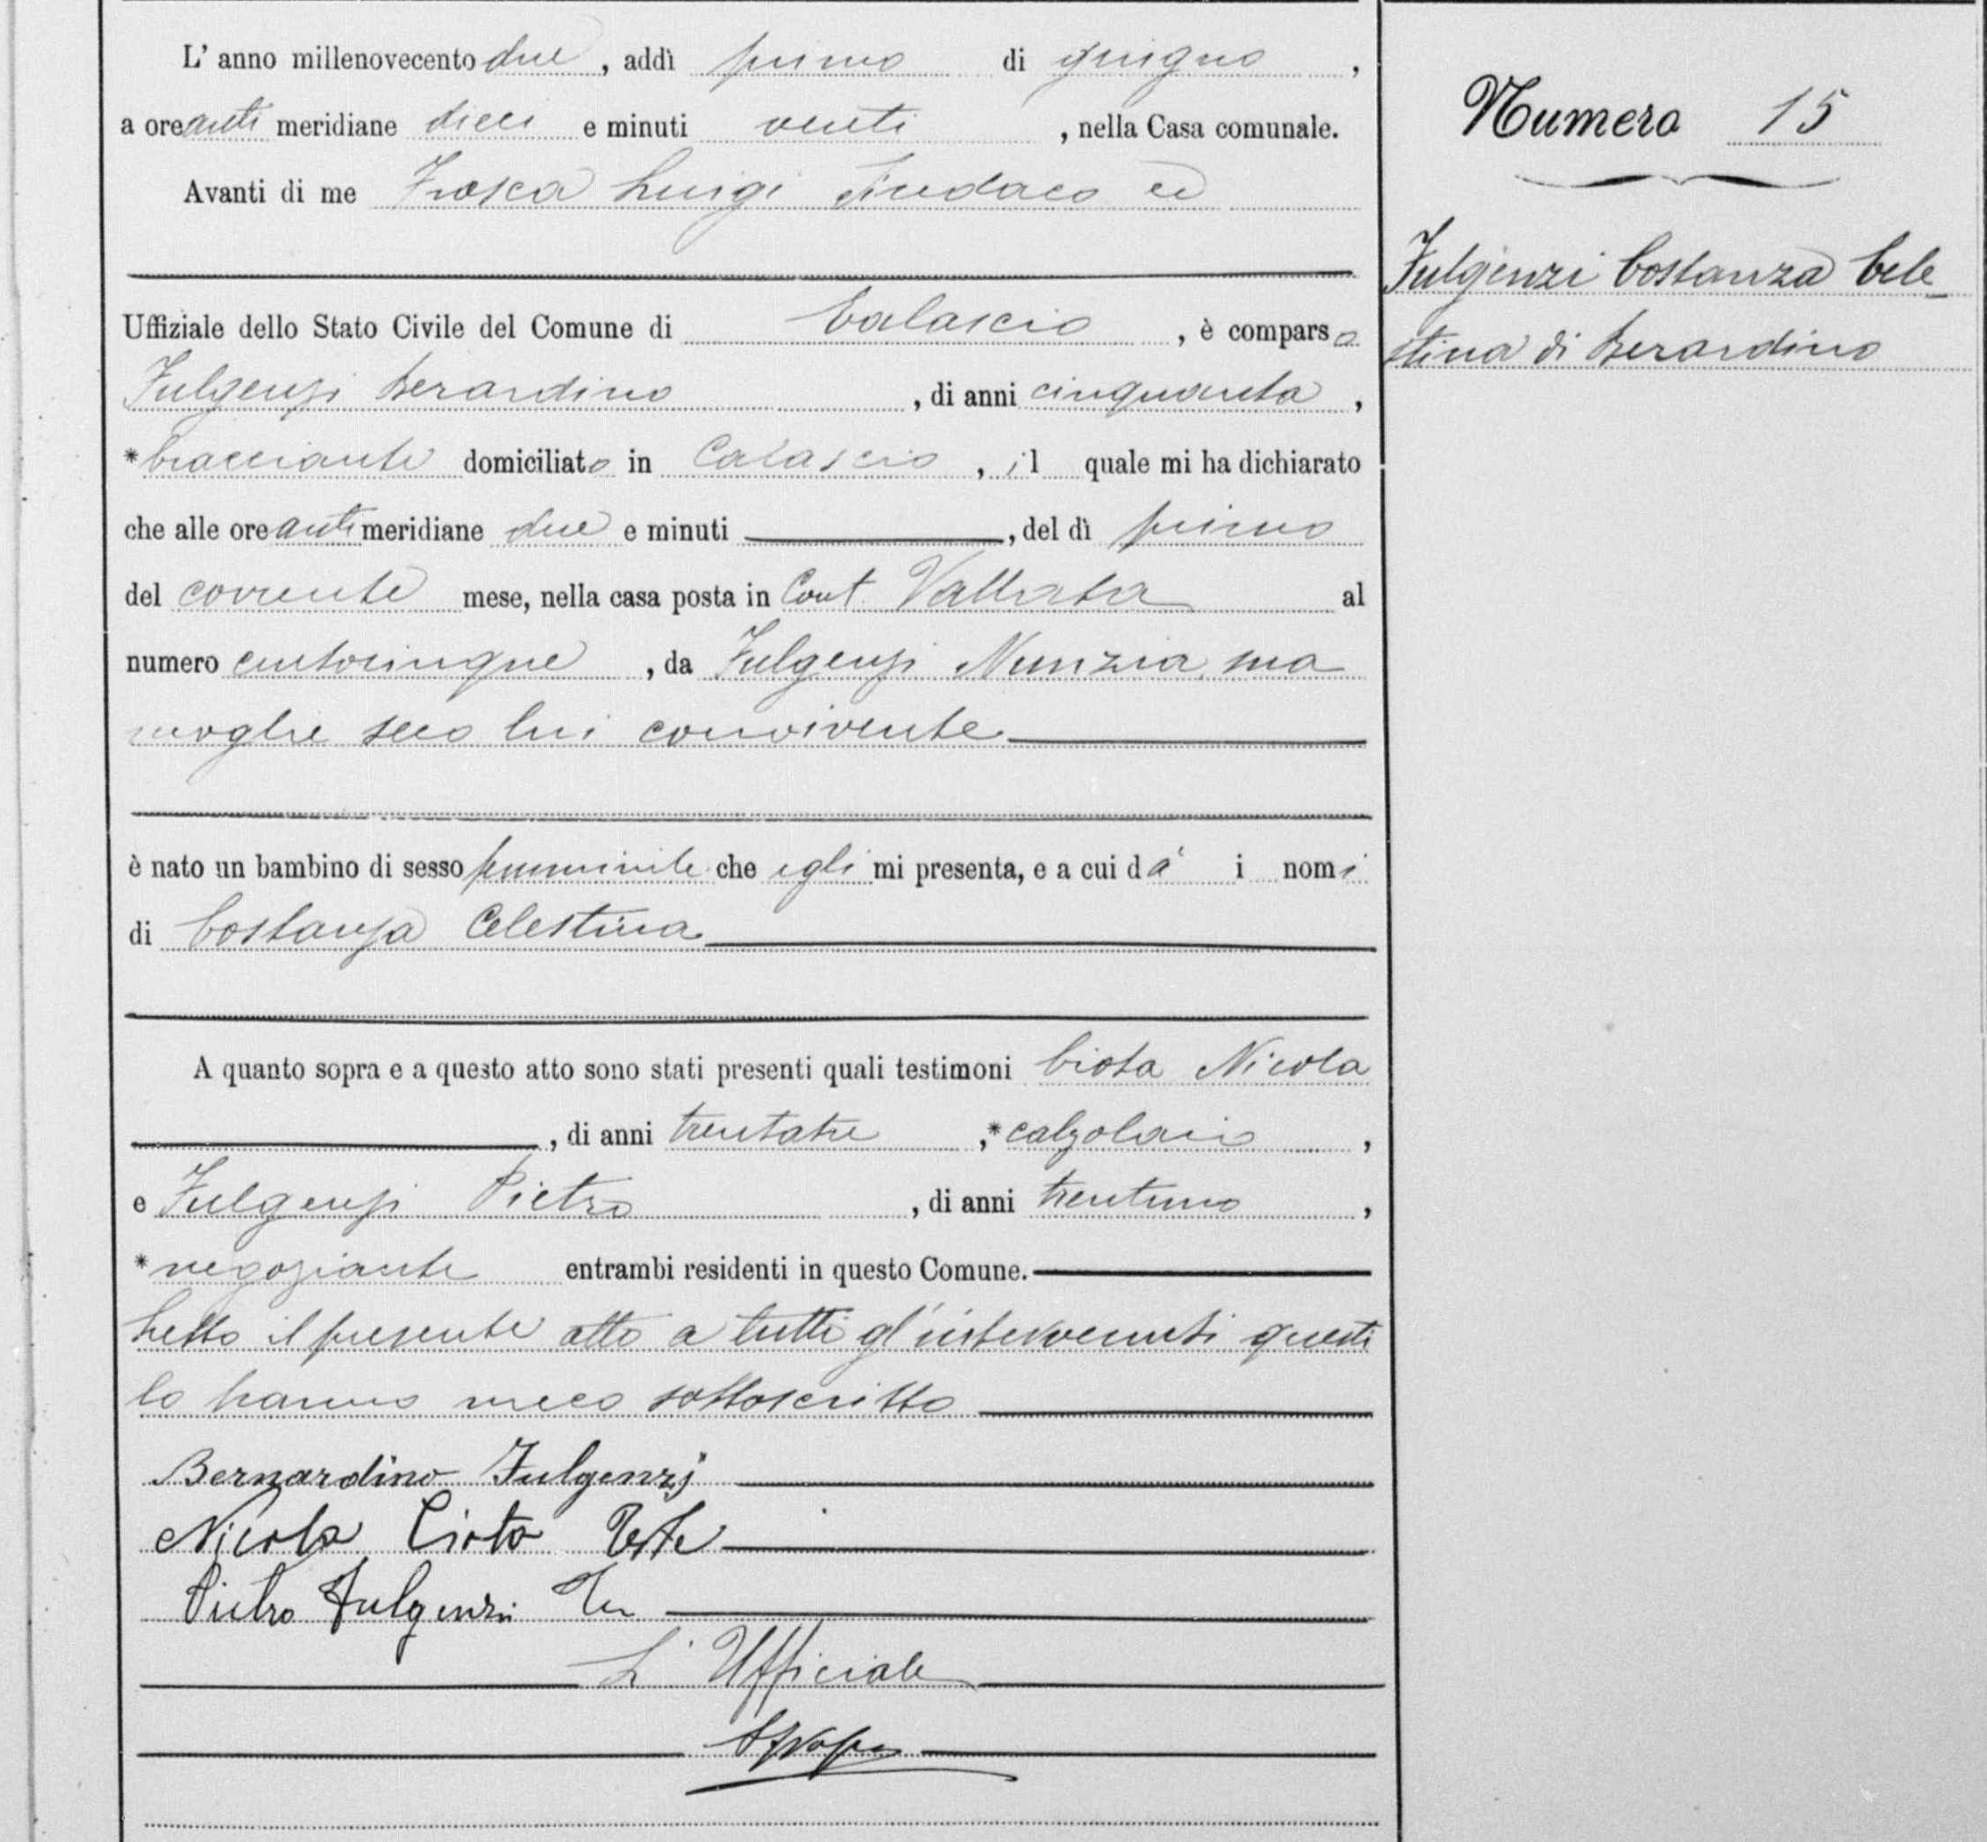 L' anno millenovecento due, addì primo di giugno,
a ore anti meridiane dieci e minuti venti, nella Casa comunale.
Avanti di me Frasca Luigi Sindaco ed
Uffiziale dello Stato Civile del Comune di Calascio, è comparso
Fulgenzi Berardino, di anni cinquanta,
*bracciante domiciliato in Calascio, il quale mi ha dichiarato
che alle ore anti meridiane due e minuti, del dì primo
del corrente mese, nella casa posta in Cont. Vallata al
numero centocinque, da Fulgenzi Nunzia, sua
moglie seco lui convivente
è nato un bambino di sesso femminile che egli mi presenta, e a cui dà i nomi
di Costanza Celestina
A quanto sopra e a questo atto sono stati presenti quali testimoni Ciota Nicola
, di anni trentatre, *calzolaio,
e Fulgenzi Pietro, di anni trentuno,
*negoziante entrambi residenti in questo Comune.
Letto il presente atto a tutti gl'intervenuti questi
lo hanno meco sottoscritto
Bernardino Fulgenzj
Nicola Ciota Teste
Pietro Fulgenzi
L'Ufficiale
Numero 15
Fulgenzi Costanza Cele-
stina di Berardino